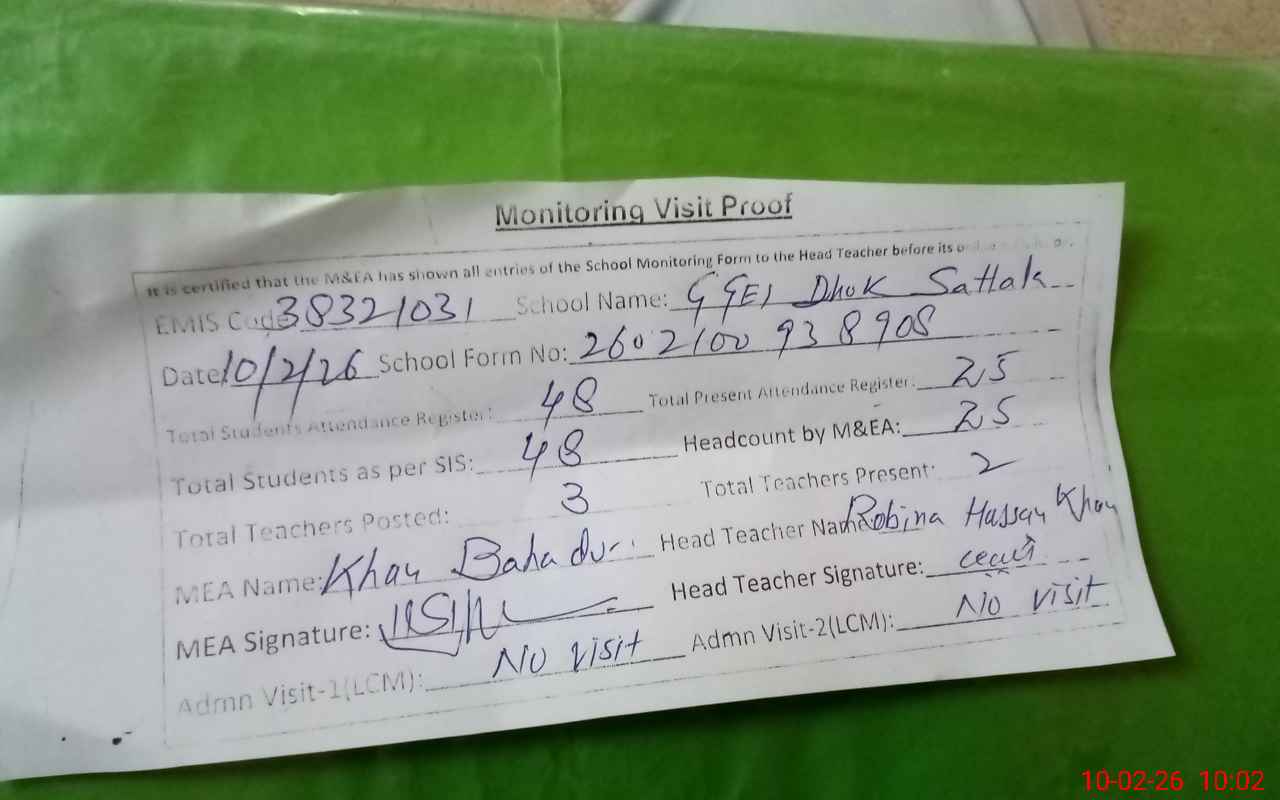 Monitoring Visit Proof
It is certified that the M&EA has shown all entries of the School Monitoring Form to the Head Teacher before its
EMIS Code 38321031 School Name: GGES Dhok Sattak
Date 10/2/26 School Form No: 2602100938908
Total Students Attendance Register: 48 Total Present Attendance Register: 25
Total Students as per SIS: 48 Headcount by M&EA: 25
Total Teachers Posted: 3 Total Teachers Present: 2
MEA Name: Khan Bahadur Head Teacher Name Robina Hassan Khan
MEA Signature: Head Teacher Signature:
Admn Visit-1(LCM): No visit Admn Visit-2(LCM): No visit
10-02-26 10:02